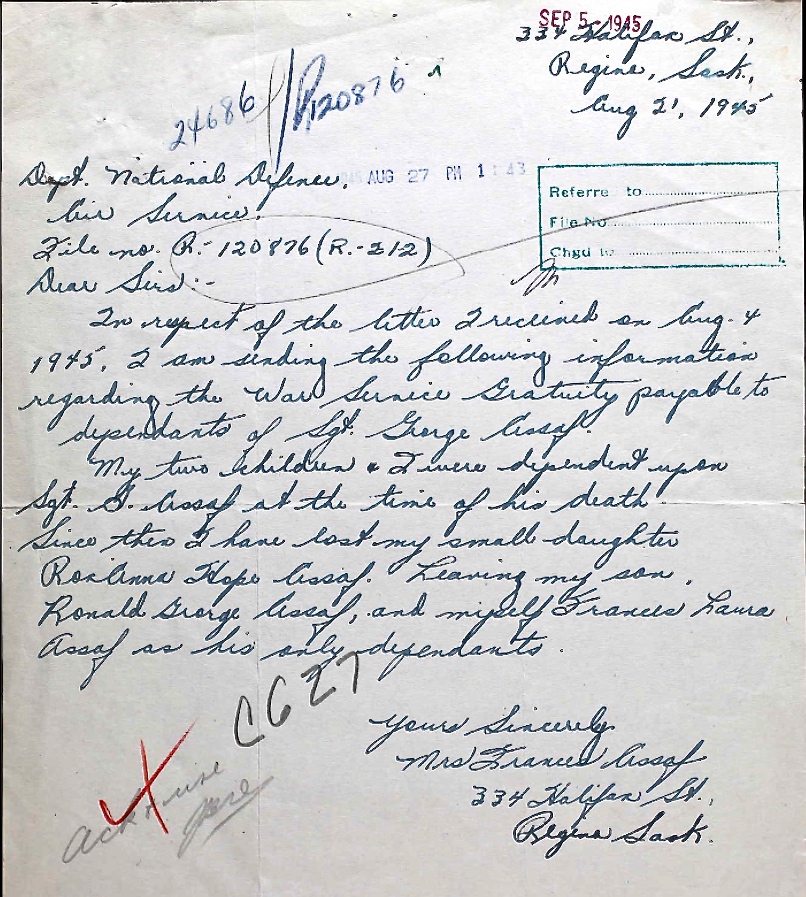 SEP 5 - 1945
334 Halifax St.,
Regina, Sask.,
Aug 21, 1945
24686 // R120876
AUG 27 PM 1:43
Dept. National Defence,
Air Service.
File no. R.-120876 (R.-212)
Dear Sirs:-
Referre to
File No
Chgd to
In respect of the letter I received on Aug. 4
1945, I am sending the following information
regarding the War Service Gratuity payable to
dependants of Sgt. George Assaf.
My two children & I were dependent upon
Sgt. G. Assaf at the time of his death.
Since then I have lost my small daughter
RoxAnna Hope Assaf. Leaving my son,
Ronald George Assaf, and myself Frances Laura
Assaf as his only dependants.
C627
Yours Sincerely
Mrs Frances Assaf
334 Halifax St.,
Regina Sask.